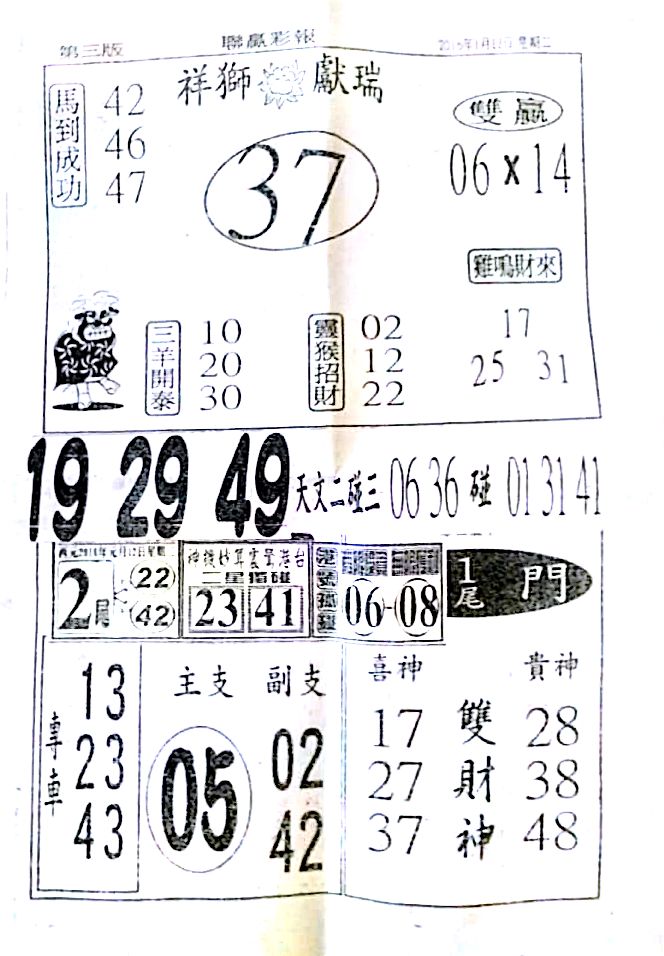 第三版 聯贏彩報
祥獅獻瑞
馬到成功
42
46
47
37
雙贏
06 x 14
雞鳴財來
17
25 31
三羊開泰
10
20
30
靈猴招財
02
12
22
19 29 49 天文二碰三 06 36 碰 01 31 41
2尾
22
42
神機妙算雲台港台
二星指碰
23 41
06-08
1尾 門
專車
13
23
43
主支
05
副支
02
42
喜神
17
27
37
雙財神
貴神
28
38
48